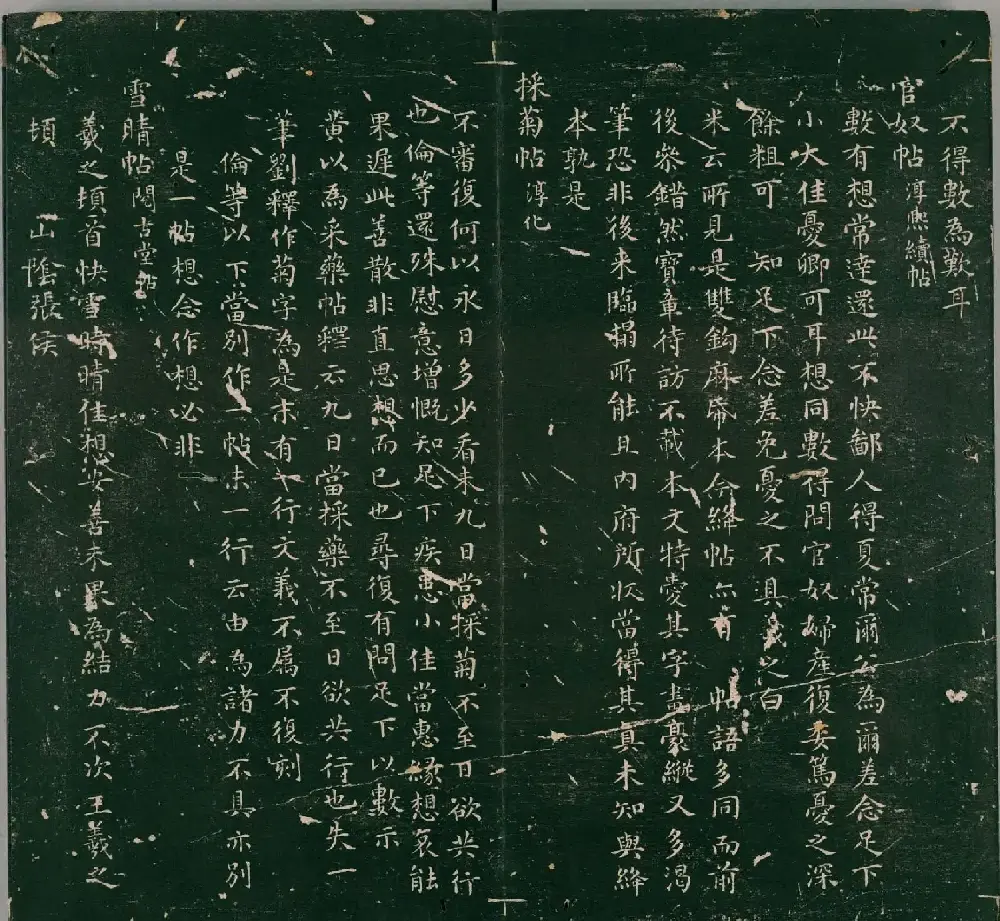 不得數為歎耳
官奴帖 淳熙續帖
數有想常達還此不快鄙人得夏常爾公為爾差念足下
小大佳憂卿可耳想同數得問官奴婦產復委篤憂之深
餘粗可 知足下念差免憂之不具 之白
米云所見是雙鈎麻帋本今絳帖亦有 帖語多同而前
後參錯然寶章待訪不載本文特愛其字畫豪縱又多渴
筆恐非後来臨榻所能且内府所收當得其真未知與絳
本孰是
採菊帖 淳化
不審復何以永日多少看未九日當採菊不至日欲共行
也倫等還殊慰意增慨知足下疾患小佳當惠緣想哀能
果遲此善散非直思想而已也尋復有問足下以數示
黄以為采藥帖釋云九日當採藥不至日欲共行也失一
筆劉釋作菊字為是末有十行文義不属不復刻
倫等以下當別作一帖末一行云由為諸力不具亦别
是一帖想念作想必非
雪晴帖 閱古堂帖
羲之頓首快雪時晴佳想安善未果為結力不次王羲之
頓 山隂張侯